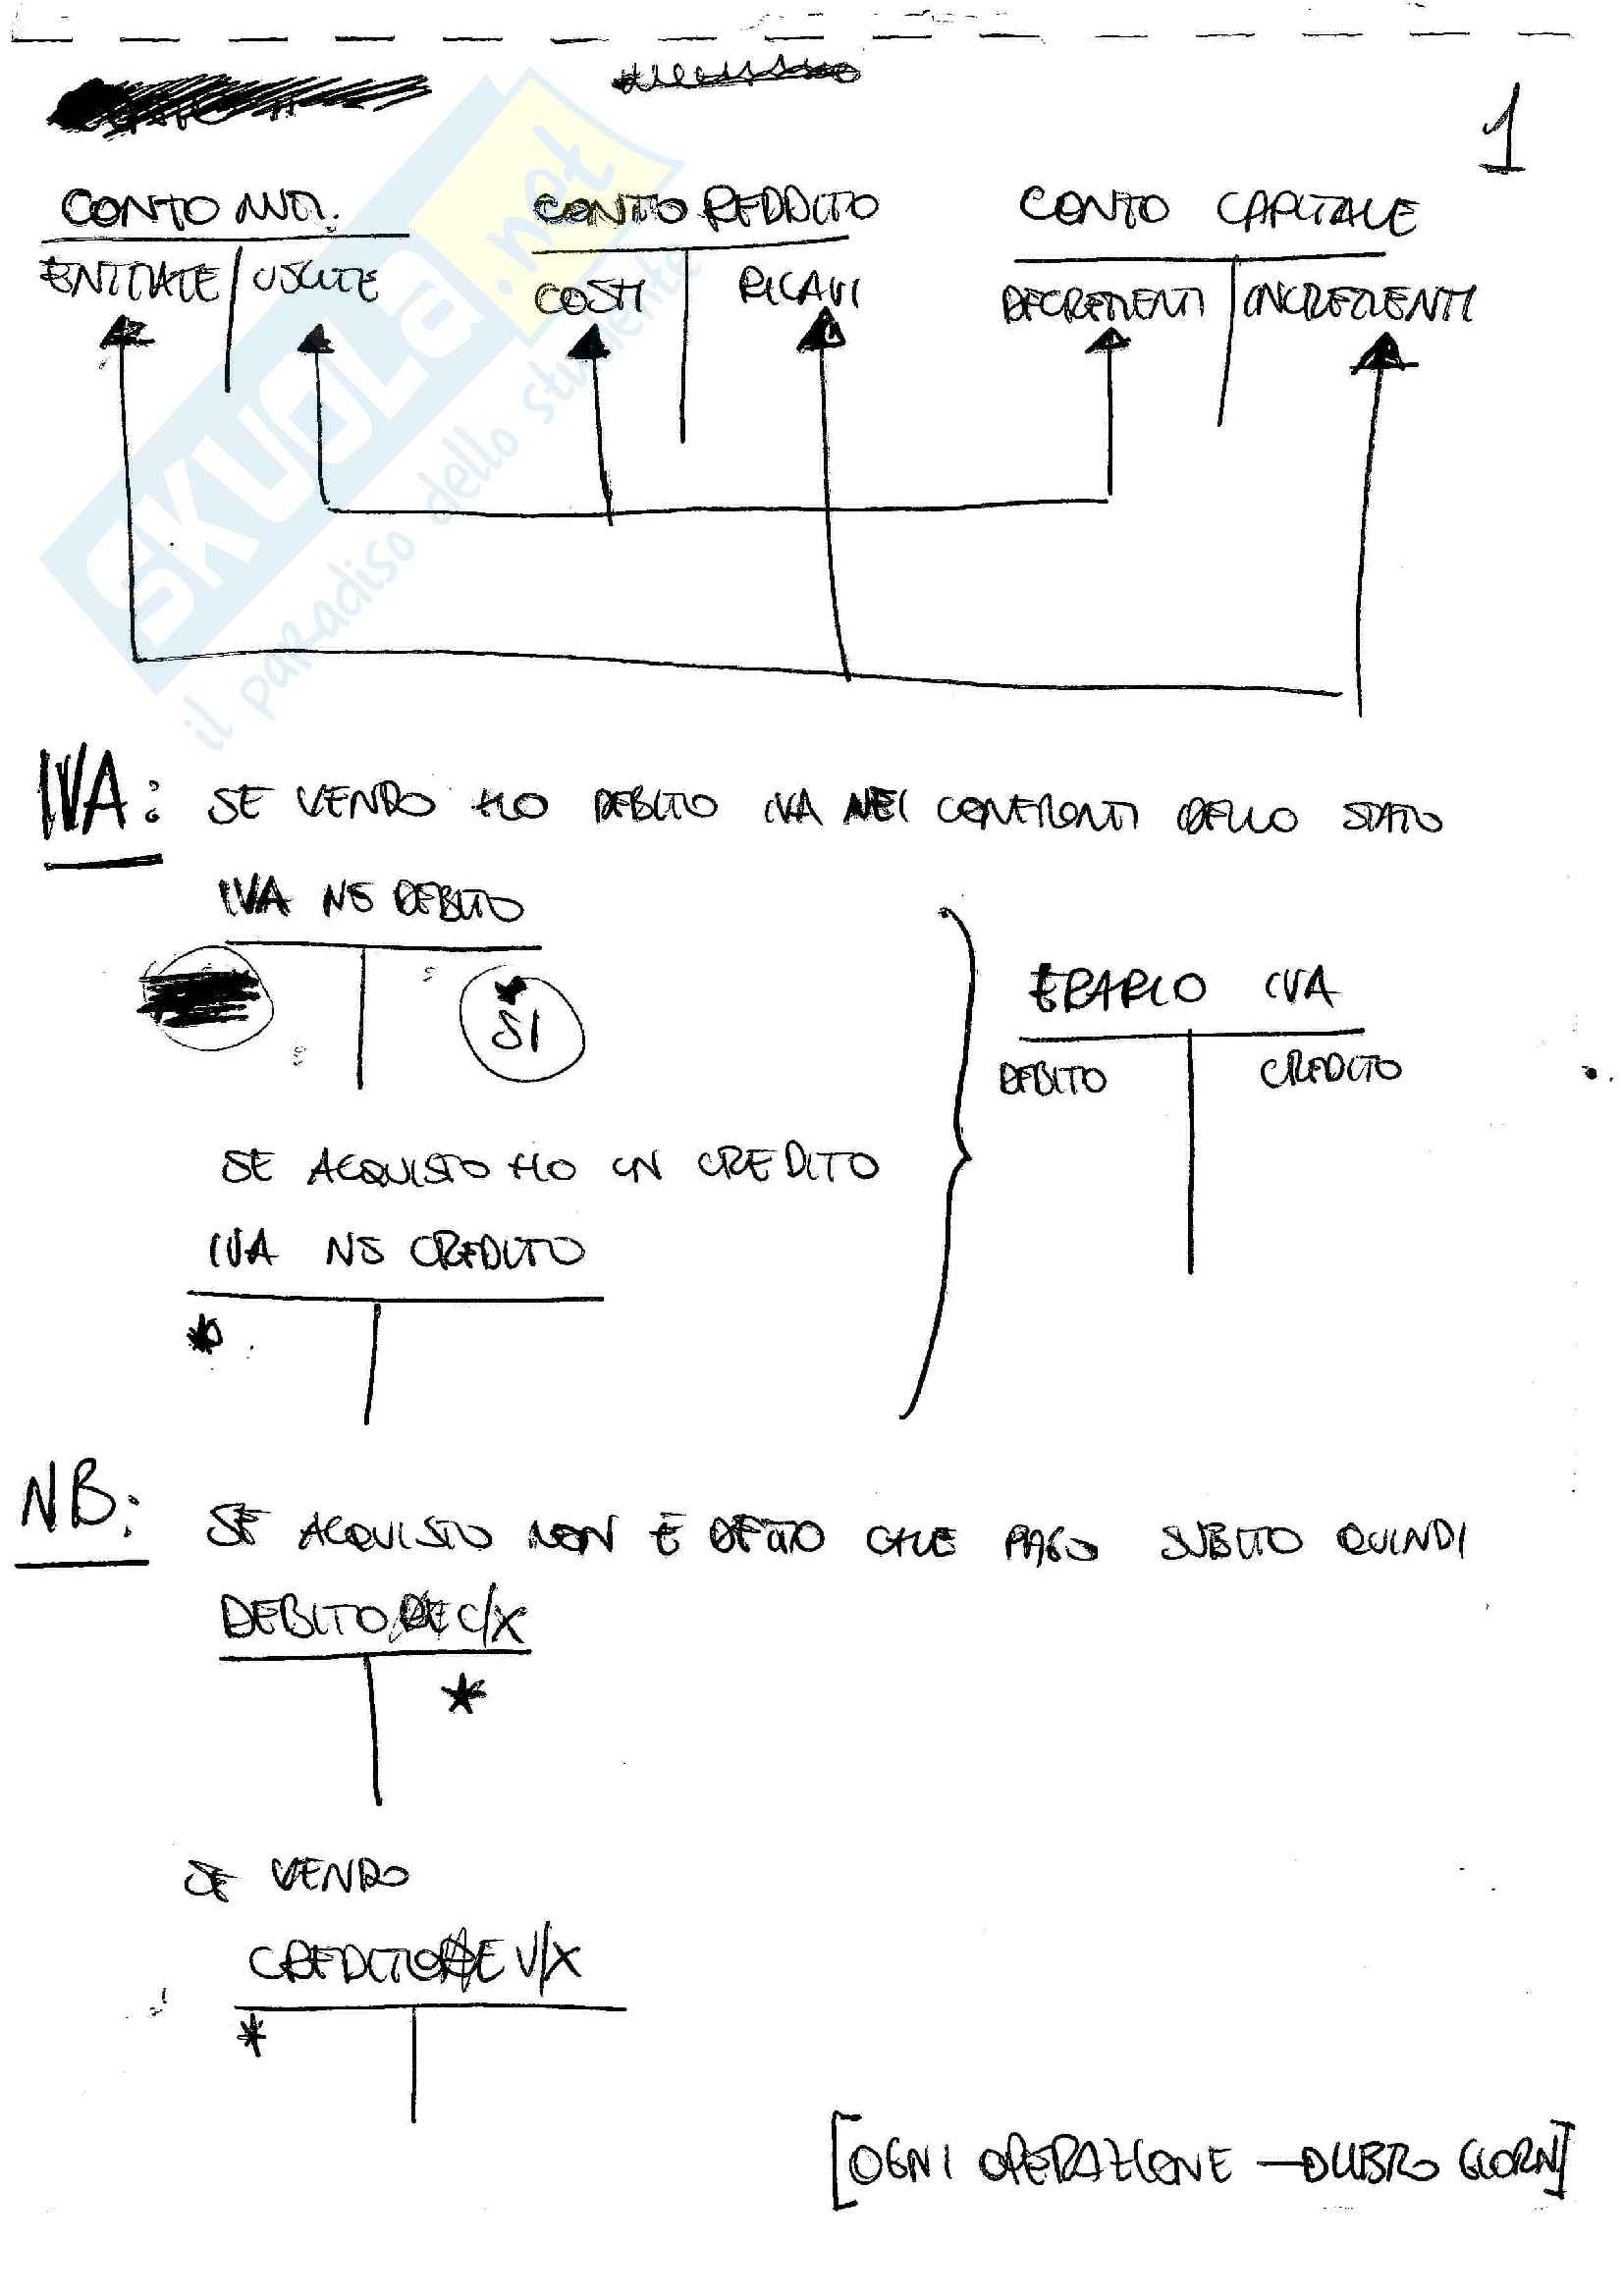 1
CONTO NUM. CONTO REDDITO CONTO CAPITALE
ENTRATE USCITE COSTI RICAVI DECREMENTI INCREMENTI
SKUOLA.net
il paradiso dello studente
IVA: SE VENDO HO DEBITO IVA NEI CONFRONTI DELLO STATO
IVA NS DEBITO
SI
ERARIO IVA
DEBITO CREDITO
SE ACQUISTO HO UN CREDITO
IVA NS CREDITO
*
NB: SE ACQUISTO NON È DETTO CHE PAGO SUBITO QUINDI
DEBITO C/X
*
SE VENDO
CREDITO V/X
*
[OGNI OPERAZIONE → LIBRO GIORN]